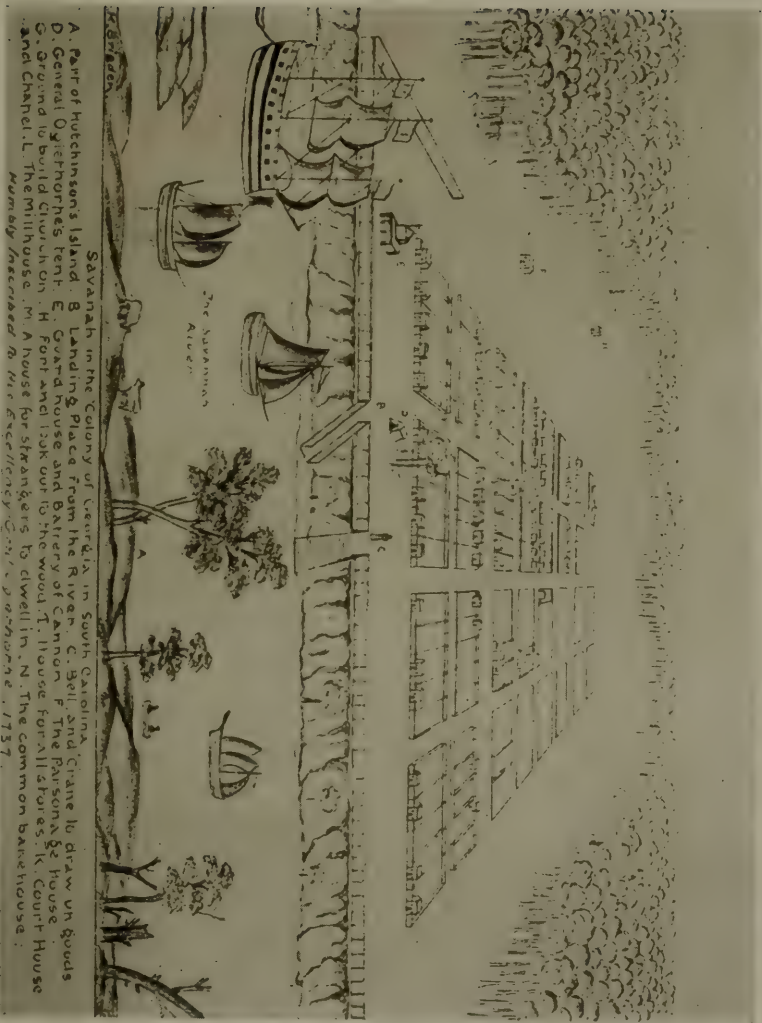 The Savannah
River
A
B
C
D
Savanah in the Colony of Georgia in South Carolina
A. Part of Hutchinson's Island. B Landing Place from the River. C. Bell and Crane to draw up goods
D. General Oglethorpe's tent. E. Guard house and Battery of Cannon. F The Parsonage House
G. Ground to build Church on. H Fort and look out to the wood. I. House for all stores. K. Court House
and Chapel. L. The Millhouse. M A house for strangers to dwell in. N. The common bakehouse.
Humbly Inscribed to His Excellency 1737